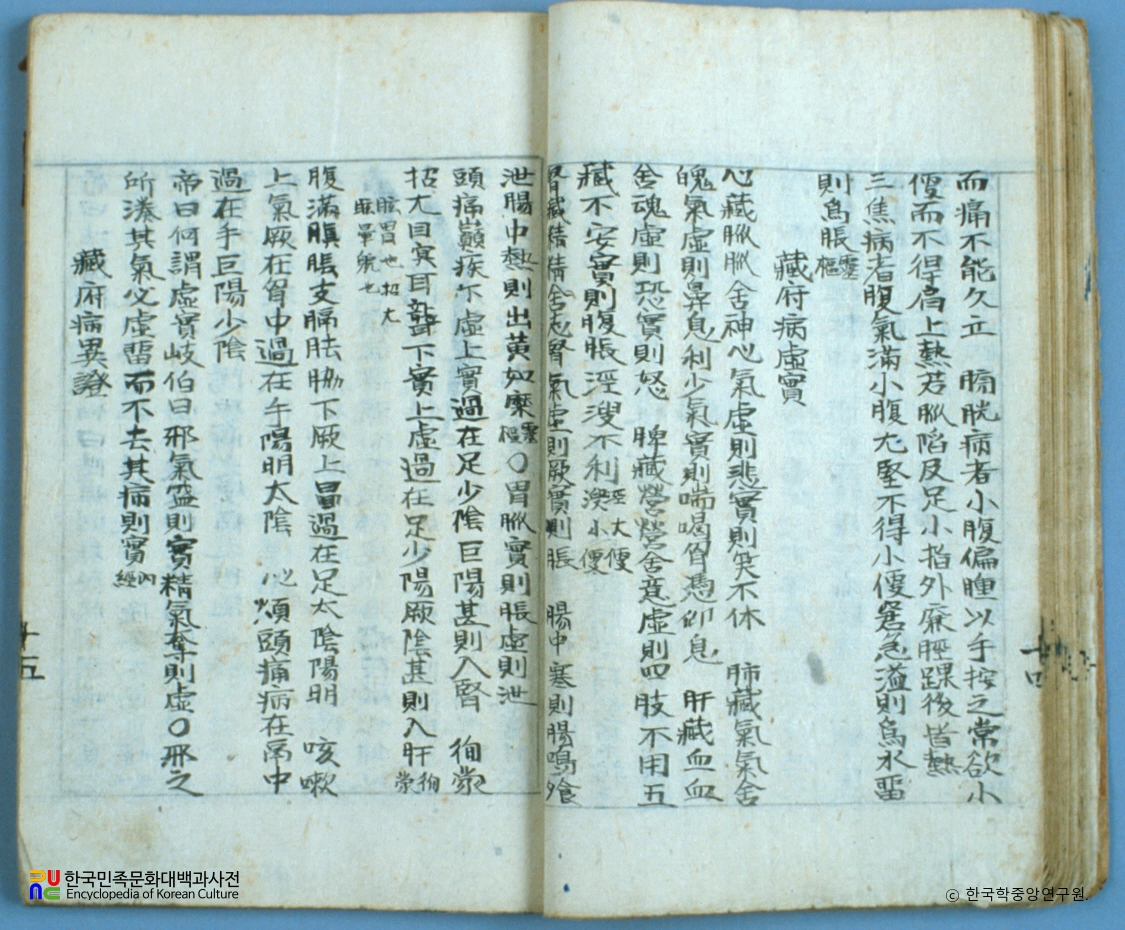 而痛不能久立 膀胱病者小腹偏腫以手按之常欲小
便而不得肩上熱若脉陷及足小指外廉脛踝後皆熱
三焦病者腹氣滿小腹尤堅不得小便窘急溢則爲水留
則爲脹靈樞
藏府病虛實
心藏脈脈舍神心氣虛則悲實則笑不休 肺藏氣氣舍
魄氣虛則鼻息利少氣實則喘喝胷憑仰息 肝藏血血
舍魂虛則恐實則怒 脾藏營營舍意虛則四肢不用五
藏不安實則腹脹涇溲不利涇大便溲小便
腎藏精精舍志腎氣虛則厥實則脹 腸中寒則腸鳴飱
泄腸中熱則出黃如糜靈樞○胃脈實則脹虛則泄
頭痛巔疾下虛上實過在足少陰巨陽甚則入腎 徇蒙
招尤目冥耳聾下實上虛過在足少陽厥陰甚則入肝徇蒙
眩冒也招尤眩暈皃也
腹滿䐜脹支膈胠脇下厥上冒過在足太陰陽明 咳嗽
上氣厥在胷中過在手陽明太陰 心煩頭痛病在鬲中
過在手巨陽少陰
帝曰何謂虛實岐伯曰邪氣盛則實精氣奪則虛○邪之
所湊其氣必虛留而不去其病則實內經
藏府病異證
十四
十五
한국민족문화대백과사전
Encyclopedia of Korean Culture
ⓒ 한국학중앙연구원